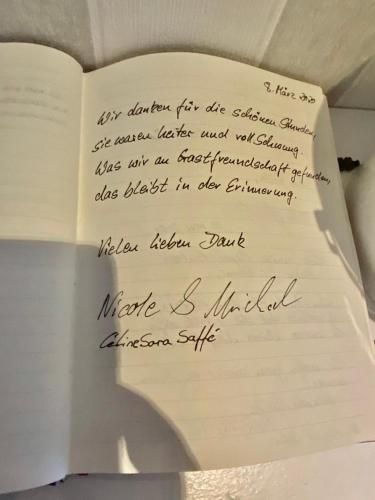 8. März 2020
Wir danken für die schönen Stunden,
sie waren heiter und voll Schwung.
Was wir an Gastfreundschaft gefunden,
das bleibt in der Erinnerung.
Vielen lieben Dank
Nicole & Michael
Céline Sara Saffé